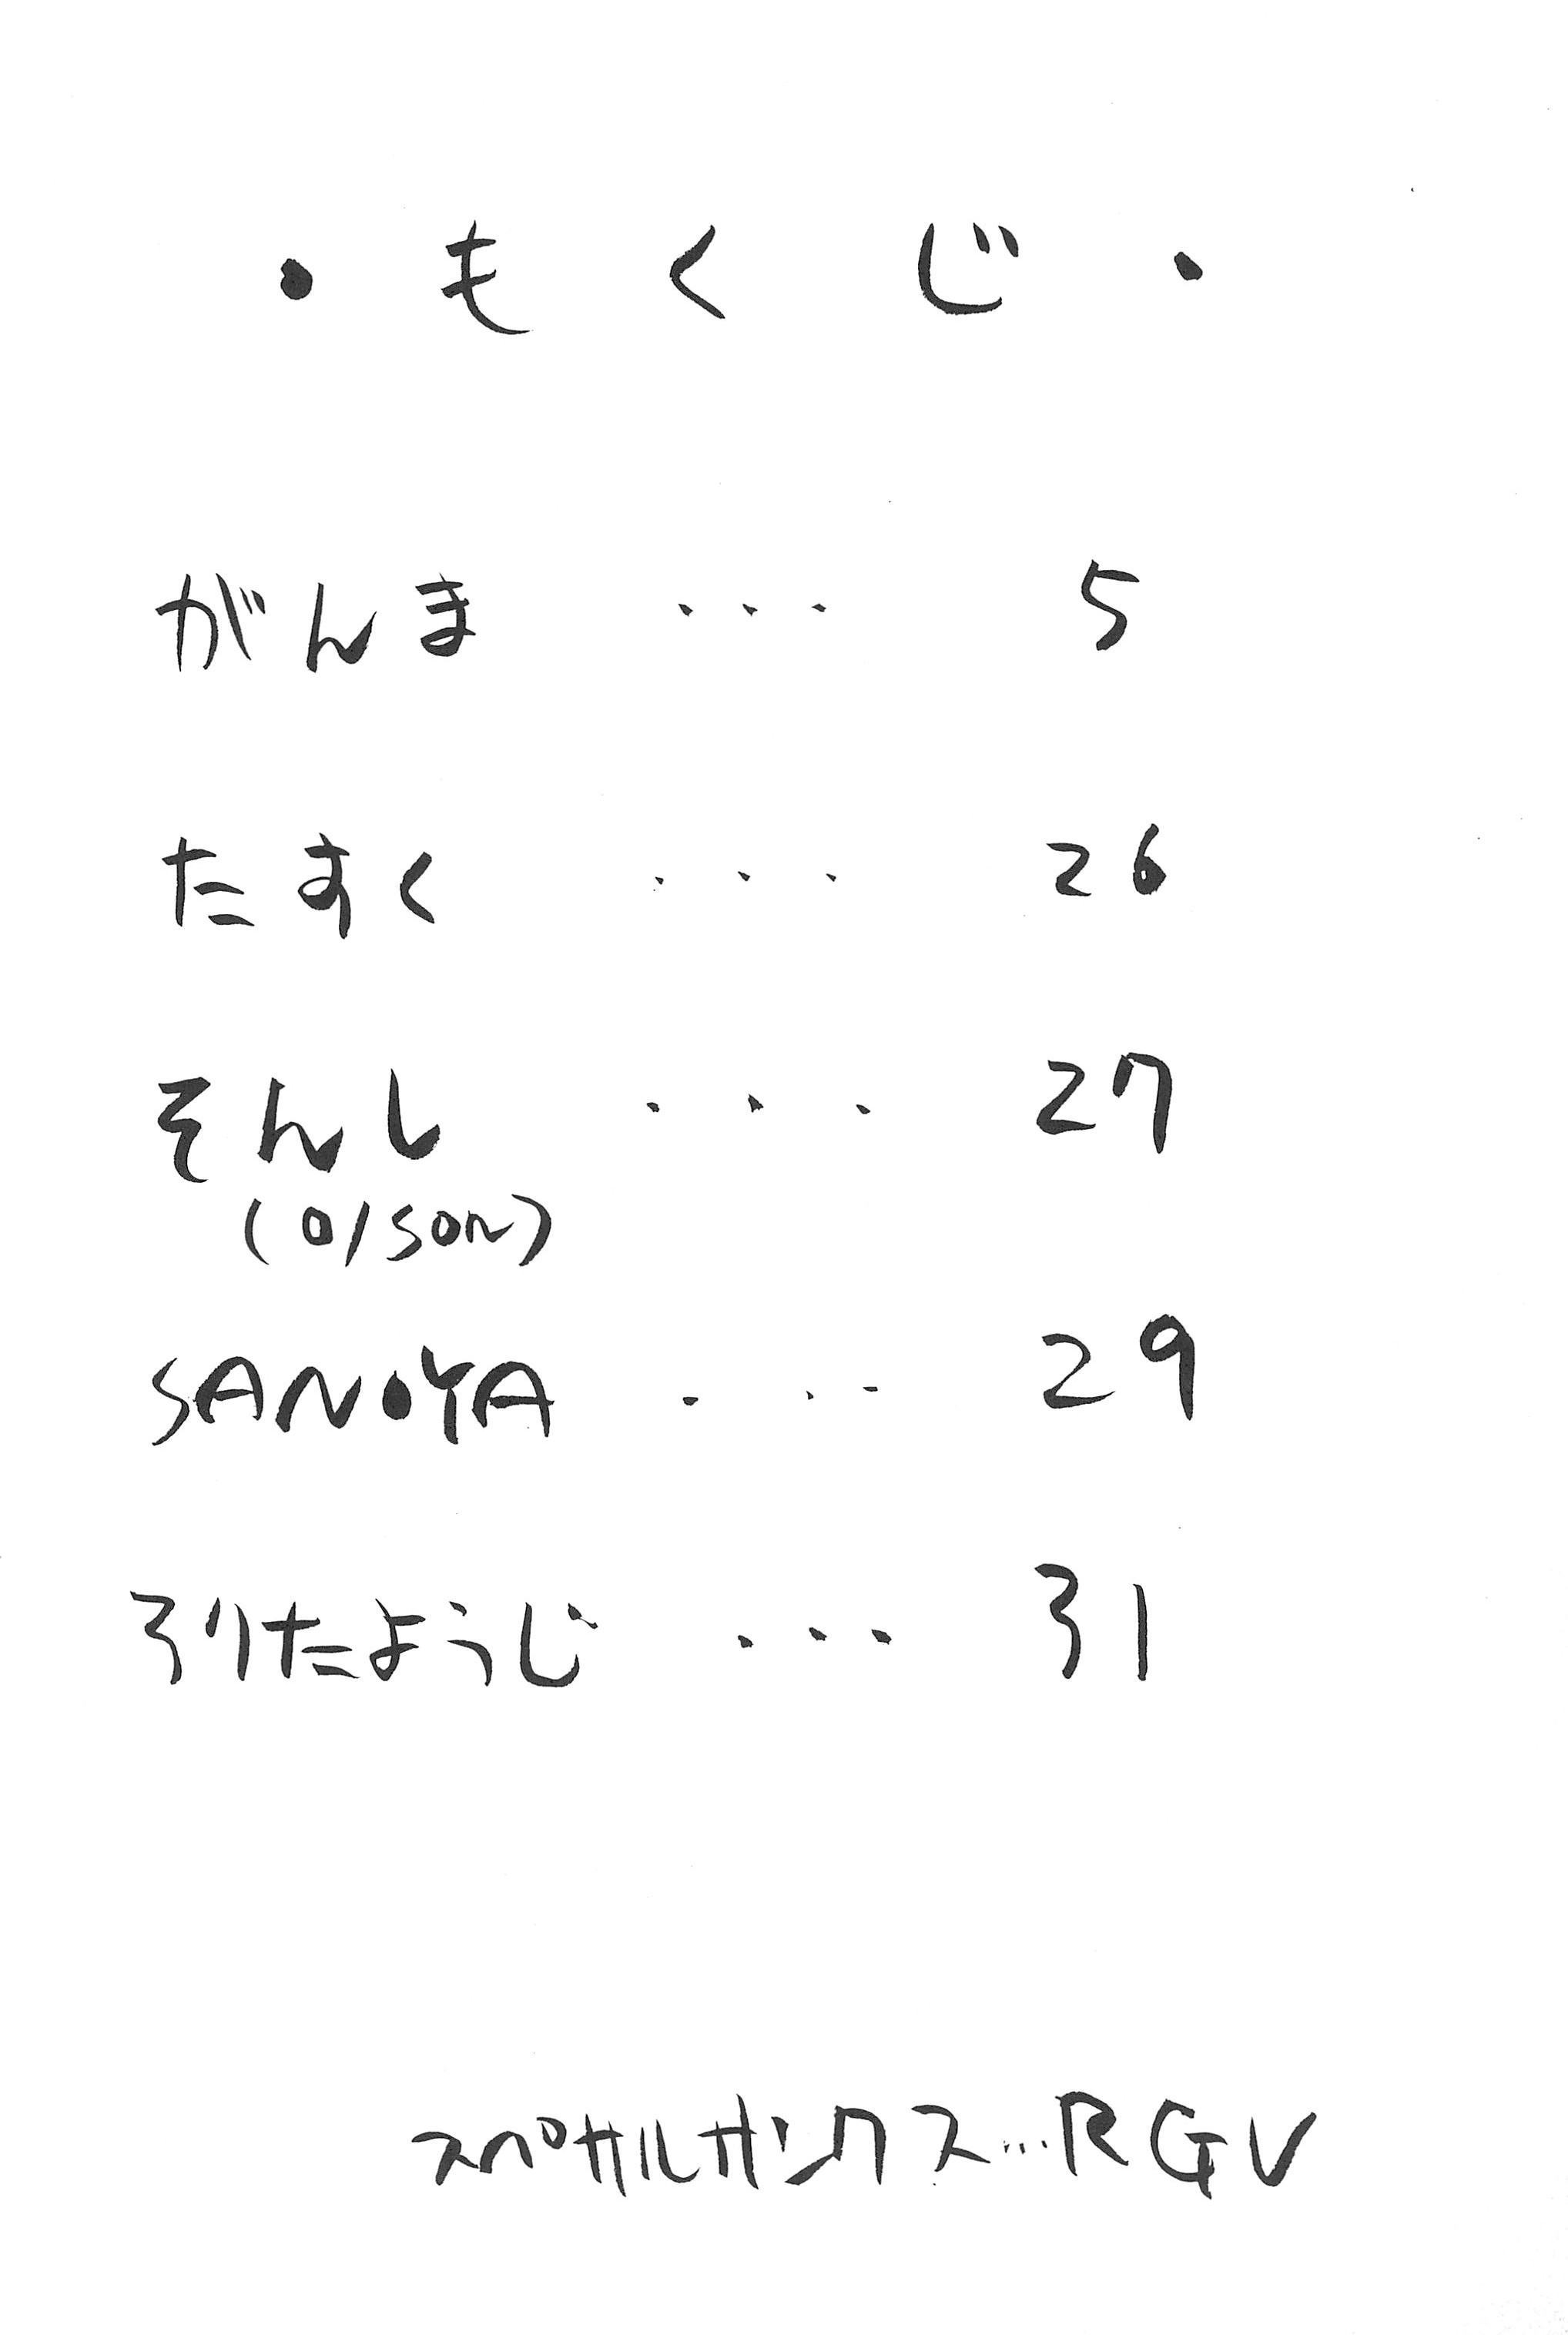 ・もくじ・
がんま ・・・ 5
たすく ・・・ 26
そんし ・・・ 27
(O/SON)
SANOYA ・・・ 29
ろりたようじ ・・・ 31
スペサルサンクス…RGV